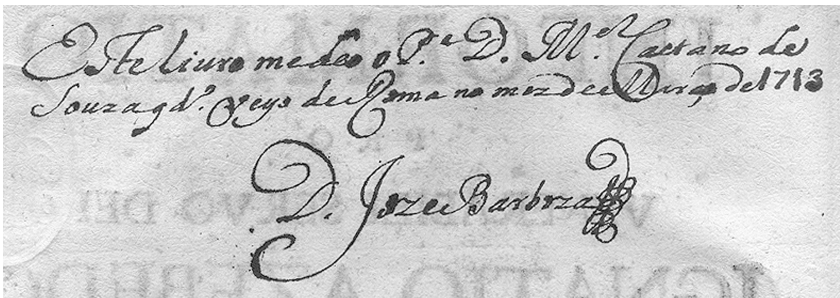 Este liuro me deo o P.e D. M.el Caetano de
Souza qd.o veyo de Roma no mez de Março de 1713
D. Joze Barboza